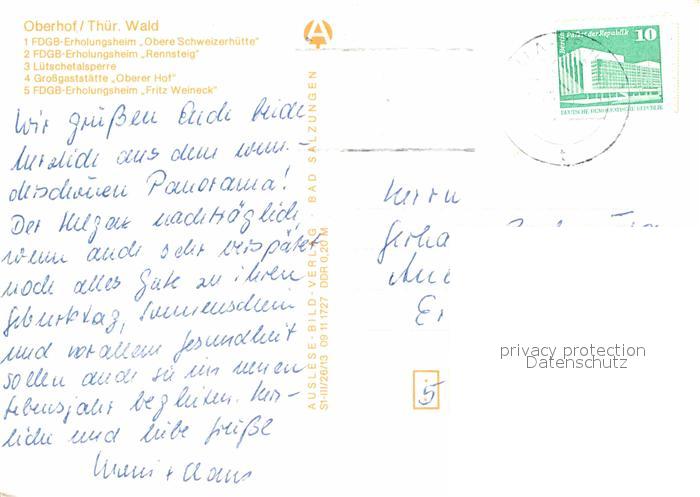 Oberhof / Thür. Wald
1 FDGB-Erholungsheim „Obere Schweizerhütte"
2 FDGB-Erholungsheim „Rennsteig"
3 Lütschetalsperre
4 Großgaststätte „Oberer Hof"
5 FDGB-Erholungsheim „Fritz Weineck"
Wir grüßen Euch beide
herzlich aus dem wun-
derschönen Panorama!
Der nachträglich
wenn auch sehr verspätet
noch alles Gute zu ihrem
Geburtstag, Sonnenschein
und vor allem Gesundheit
sollen auch sie im neuen
Lebensjahr begleiten. Herz-
liche und liebe Grüße
+ Claus
AUSLESE-BILD-VERLAG · BAD SALZUNGEN
S1-III/26/13 09 11 1727 DDR 0,20 M
Berlin Palast der Republik
10
DEUTSCHE DEMOKRATISCHE REPUBLIK
Herrn
Gerha
5
privacy protection
Datenschutz